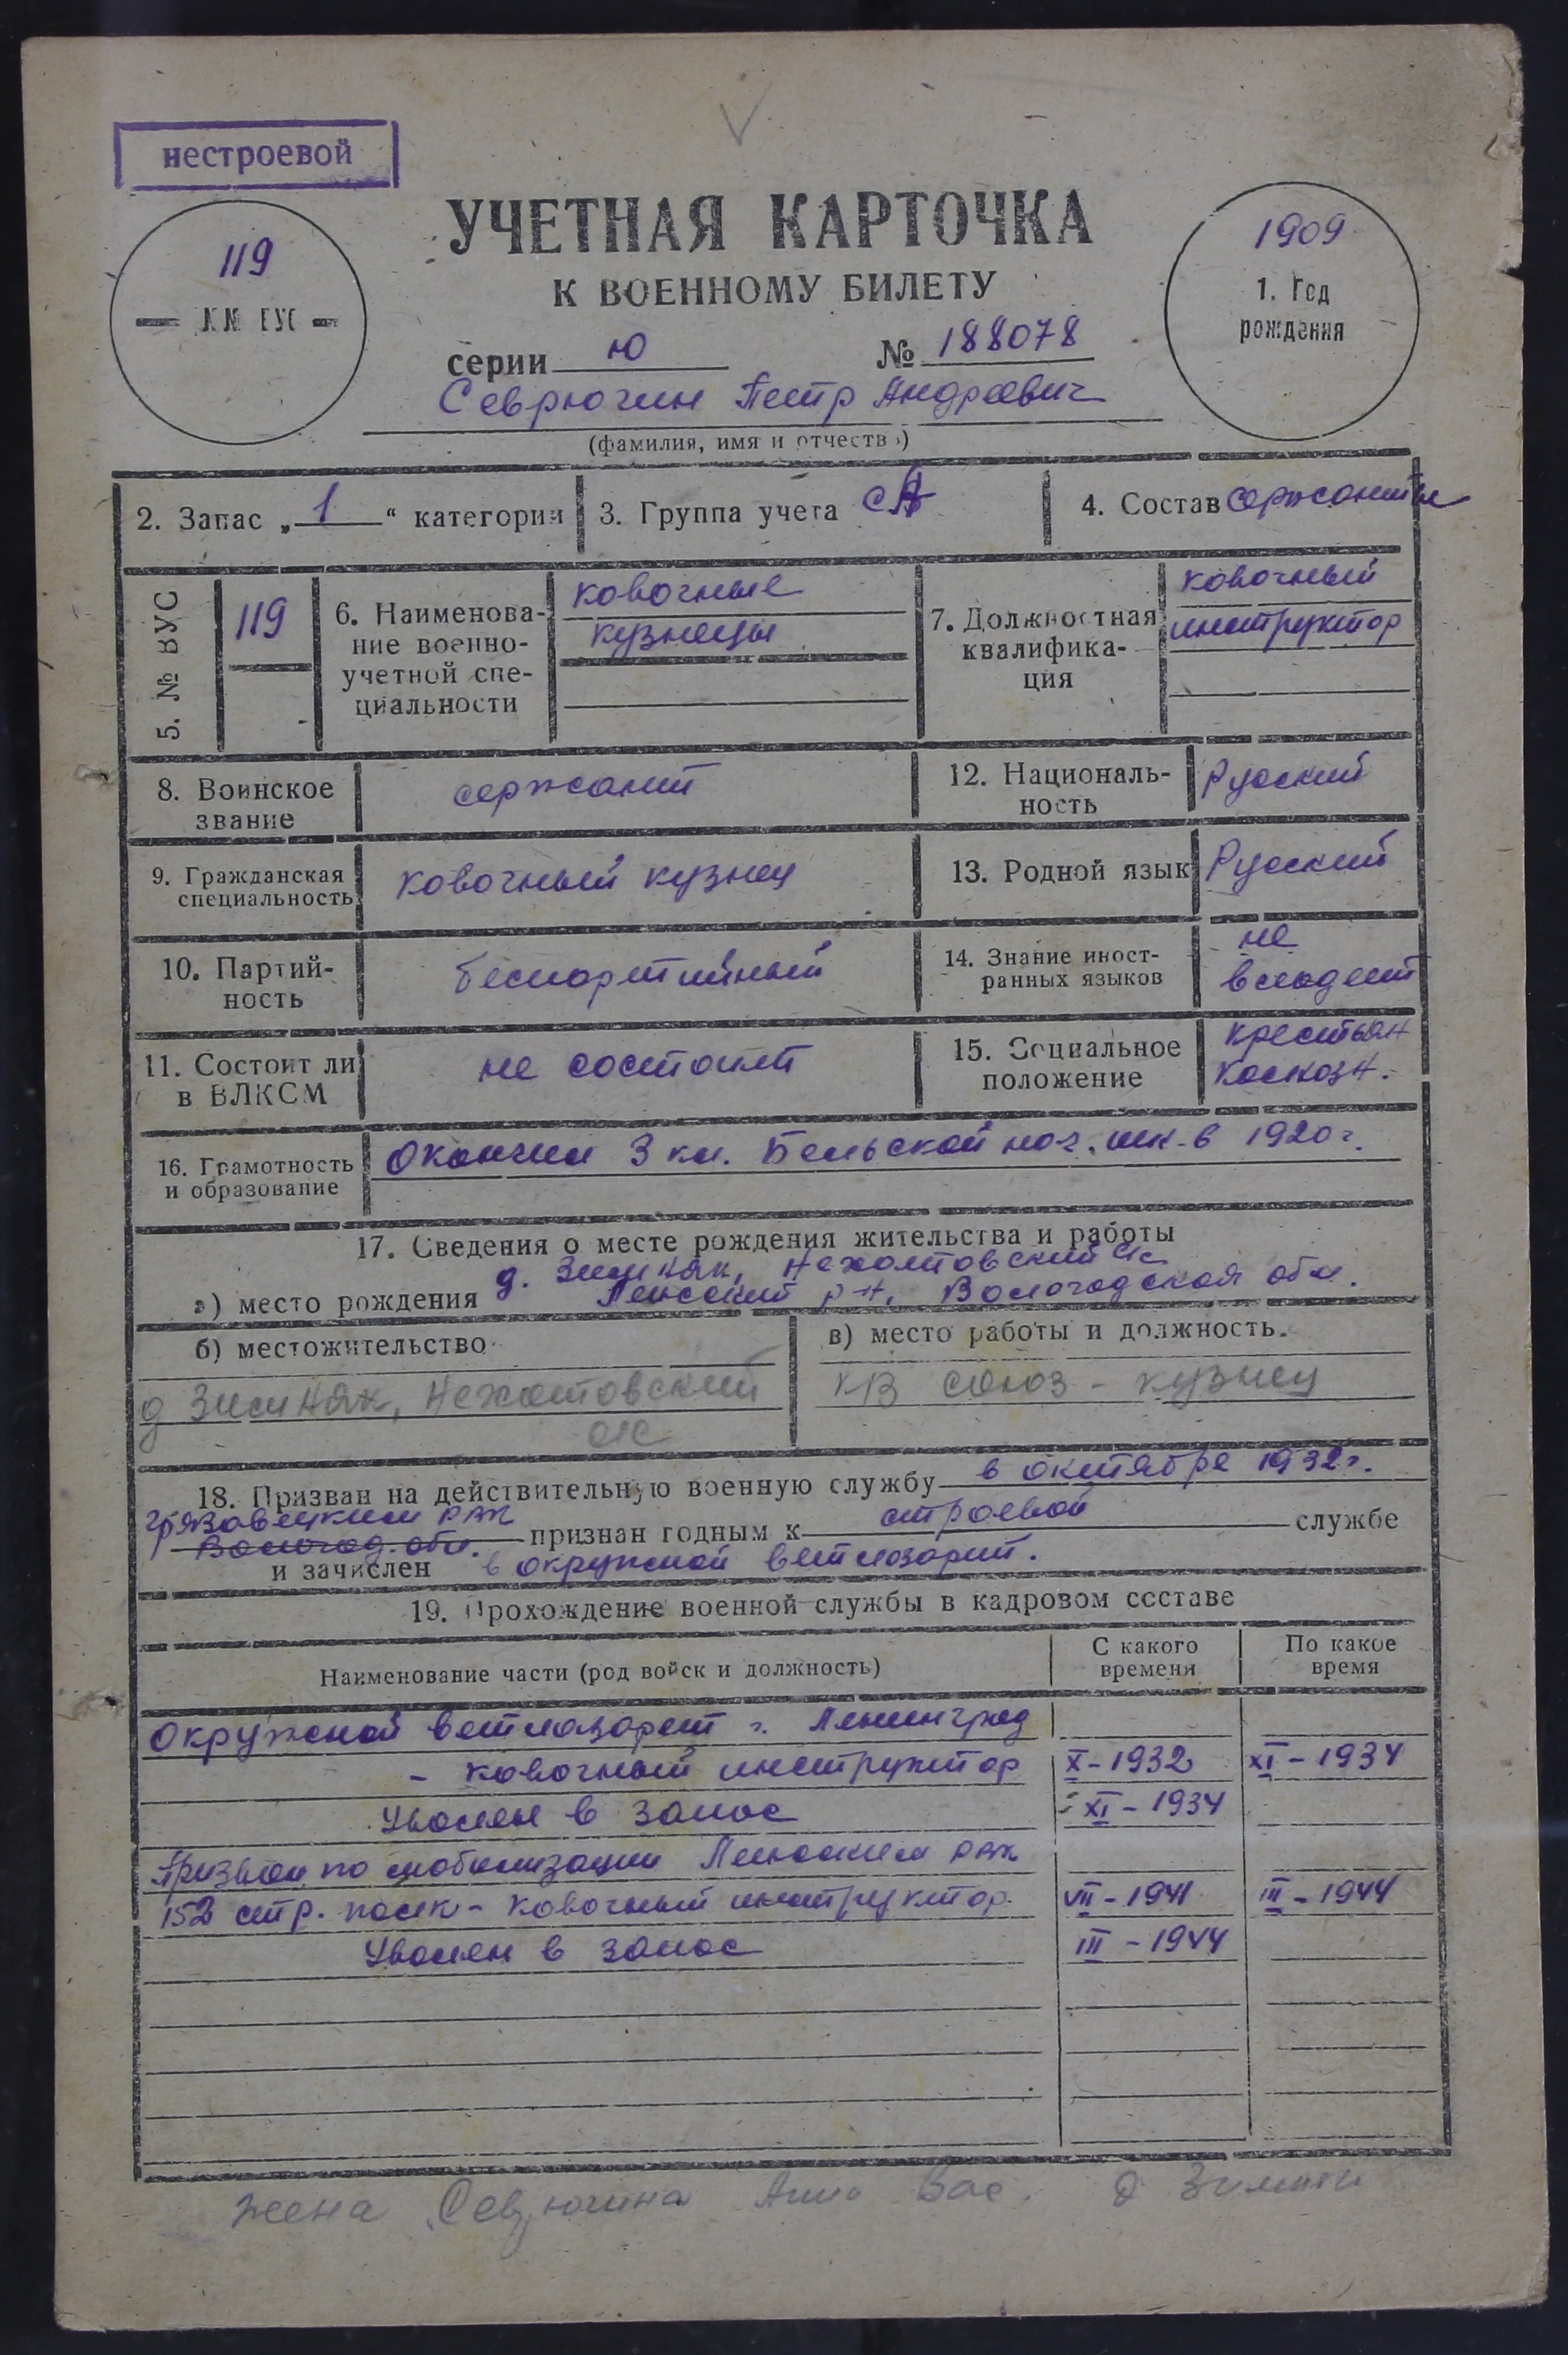 нестроевой
УЧЕТНАЯ КАРТОЧКА
К ВОЕННОМУ БИЛЕТУ
119
№№ ВУС
1909
1. Год
рождения
серии Ю № 188078
Севрюгин Петр Андреевич
(фамилия, имя и отчество)
2. Запас „1“ категории
3. Группа учета СА
4. Состав сержанты
5. № ВУС
119
6. Наименова-
ние военно-
учетной спе-
циальности
ковочные
кузнецы
7. Должностная
квалифика-
ция
ковочный
инструктор
8. Воинское
звание
сержант
12. Националь-
ность
Русский
9. Гражданская
специальность
ковочный кузнец
13. Родной язык
Русский
10. Партий-
ность
беспартийный
14. Знание иност-
ранных языков
не
владеет
11. Состоит ли
в ВЛКСМ
не состоит
15. Социальное
положение
крестьян
колхозн.
16. Грамотность
и образование
Окончил 3 кл. Бельской нач. шк. в 1920 г.
17. Сведения о месте рождения жительства и работы
д. Зимняк, Нехотовский с/с
а) место рождения р-н, Вологодская обл.
б) местожительство
д Зимняк, Нехотовский
с/с
в) место работы и должность.
союз - кузнец
18. Призван на действительную военную службу в октябре 1932 г.
Грязовецким РВК
Вологод. обл. признан годным к строевой службе
и зачислен в окружной ветлазарет.
19. Прохождение военной службы в кадровом составе
Наименование части (род войск и должность)
С какого
времени
По какое
время
Окружной ветлазарет г. Ленинград
- ковочный инструктор X - 1932 XI - 1934
Уволен в запас XI - 1934
Призван по мобилизации РВК
152 стр. полк - ковочный инструктор. VII - 1941 III - 1944
Уволен в запас III - 1944
жена Севрюгина Анна Вас. д Зимняк